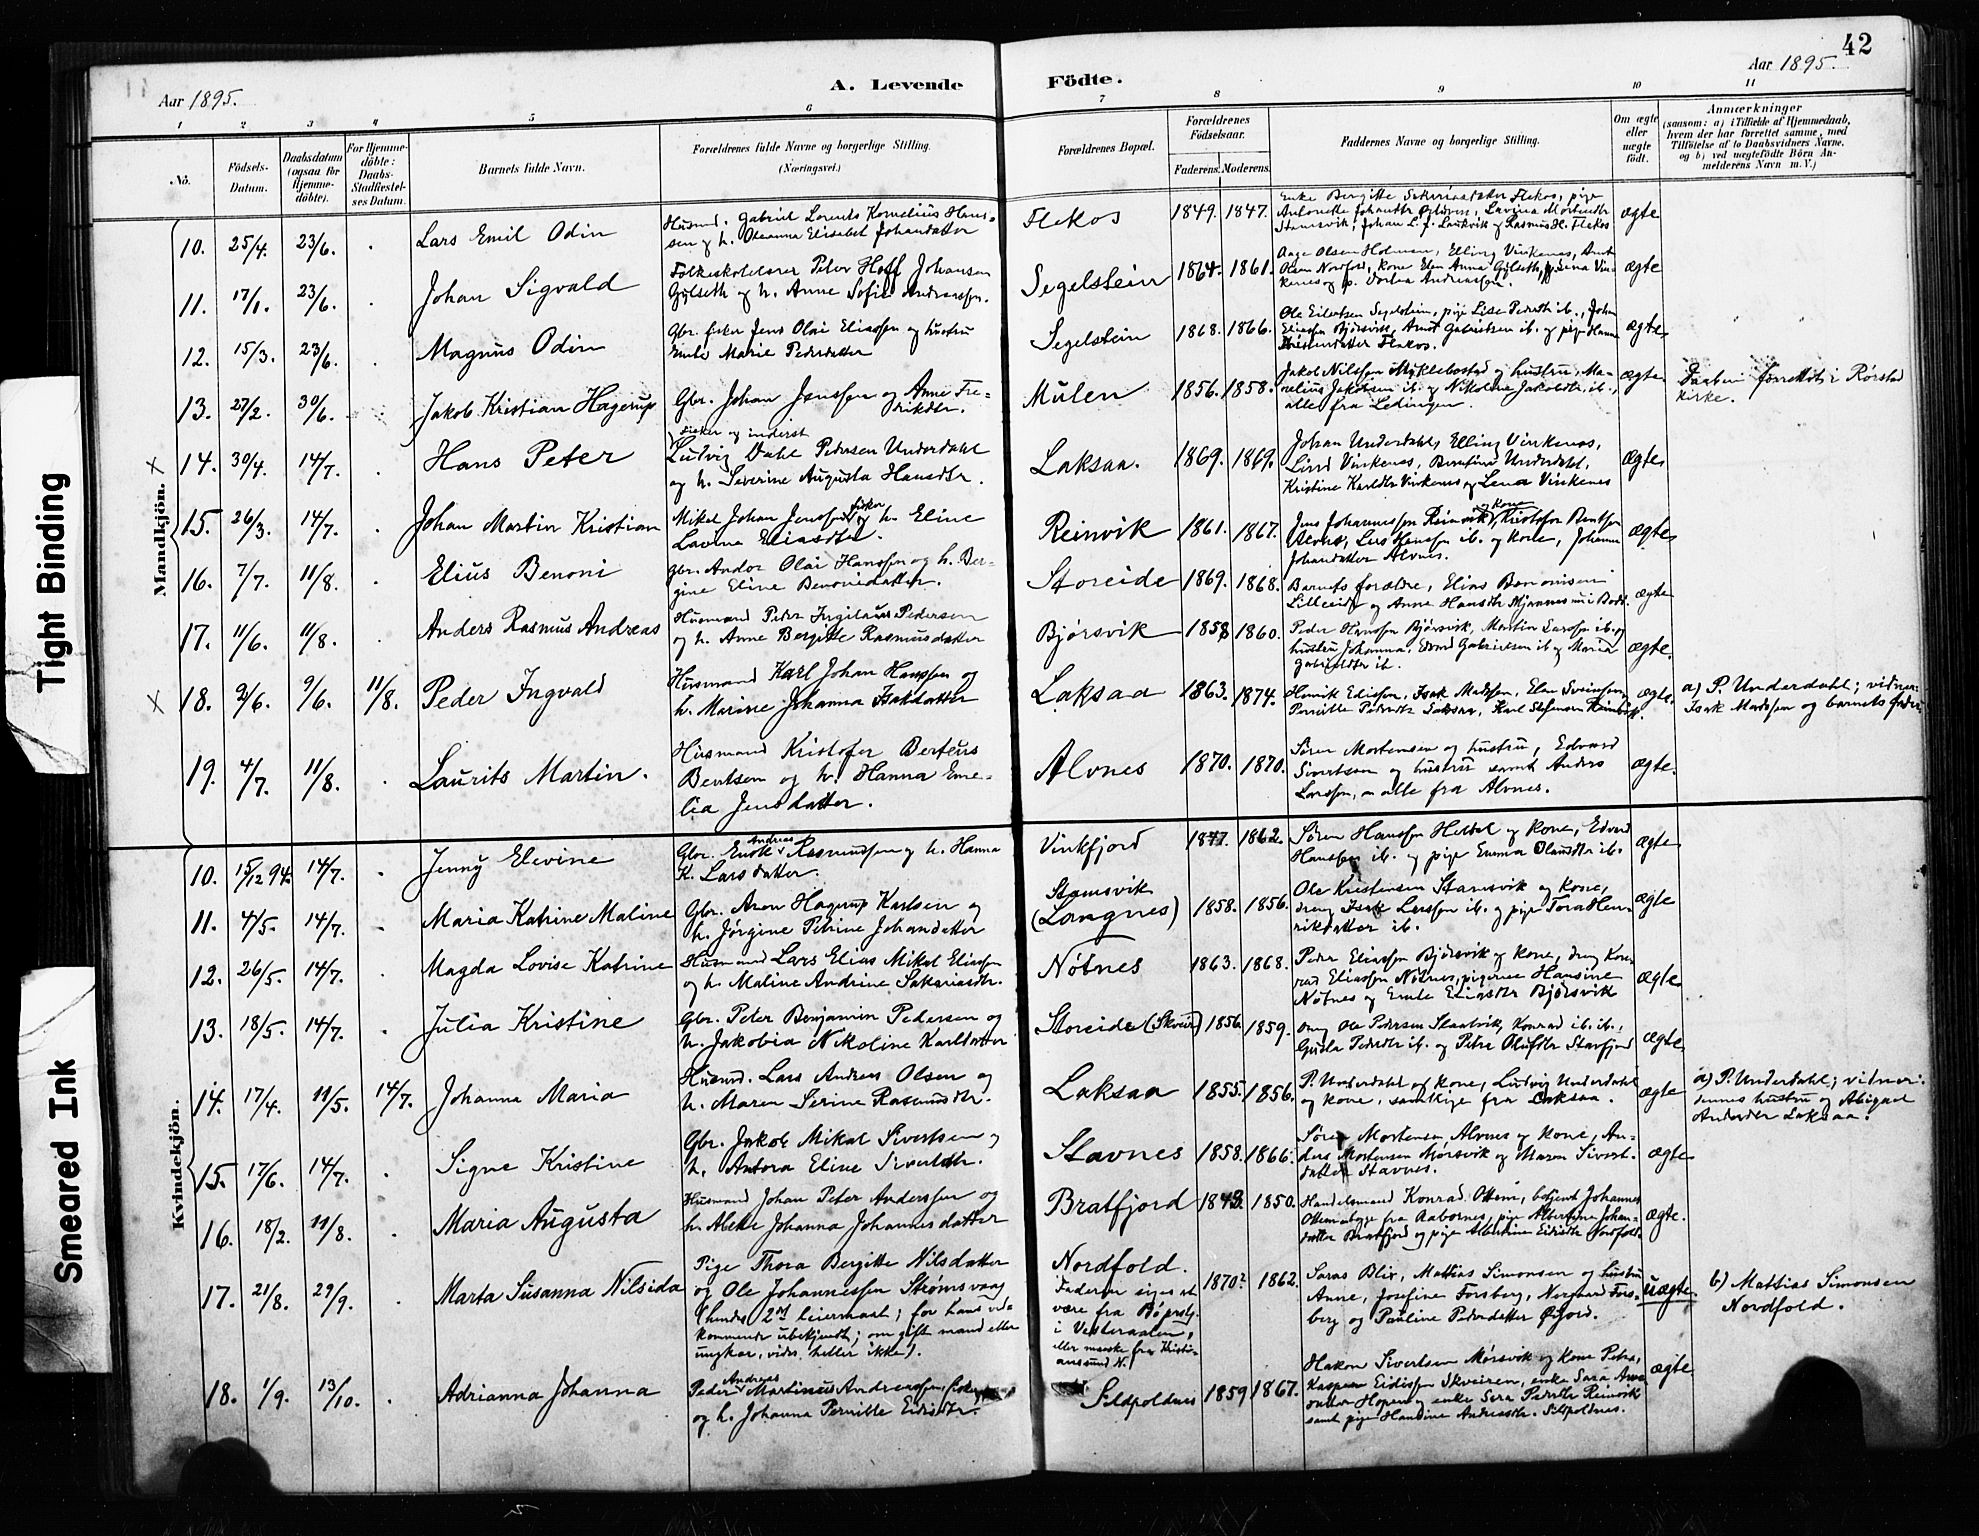 42
Aar 1895.
A. Levende Födte.
Aar 1895.
1 2 3 4 5 6 7 8 9 10 11
No.
Födsels-Datum.
Daabsdatum (ogsaa for Hjemme-döbte).
For Hjemme-döbte: Daabs-Stadfæstel-ses Datum.
Barnets fulde Navn.
Forældrenes fulde Navne og borgerlige Stilling. (Næringsvei.)
Forældrenes Bopæl.
Forældrenes Födselsaar.
Faderens. Moderens.
Faddernes Navne og borgerlige Stilling.
Om ægte eller uægte födt.
Anmærkninger
(saasom: a) i Tilfælde af Hjemmedaab, hvem der har forrettet samme, med Tilföielse af to Daabsvidners Navne, og b) ved uægtefödte Börn An-melderens Navn m. V.)
Mandkjön.
10. 25/4. 23/6. Lars Emil Odin
Husmd. Gabriel Lorents Kornelius Hans-
sen og h. Oleanna Elisabet Johandatter
Flekos 1849. 1847.
Enke Bergitte Sakariasdatter Flekos, pige
Stamsvik, Johan L. f. Laukvik og Rasmus H. Flekos
ægte
11. 17/1. 23/6. Johan Sigvald
Folkeskolelærer Peter Hoff Johansen
Gylseth og h. Anne Sofie Andreassen.
Segelstein 1864. 1861.
Aage Olsen Holmen, Elling Vinkenes, Arnt
Olsen Nordfold, kone Elen Anna Gylseth, pigerna Vin-
kenes og p. Dortea Andreassen.
ægte
12. 15/3. 23/6. Magnus Odin
Gbr. fisker Jens Olai Eliassen og hustru
Emile Marie Pedersdatter
Segelstein 1868. 1866.
Ole Eilertsen Segelstein, pige Lise Pedersdtr ib., Johan
Eliassen Bjørsvik, Arnt Gabrielsen ib. og pige Hanna
Kristensdatter Flekos.
ægte
13. 27/2. 30/6. Jakob Kristian Hagerup
Gbr. Johan Jenssen og Anne Fre-
drikdtr.
Mulen 1856. 1858.
Jakob Nilssen Myklebostad og hustru, Ma-
relius Jakobsen ib. og Nikoline Jakobsdtr ib.,
alle fra Ledingen.
ægte
Daaben forrettet i Rørstad
Kirke.
x 14. 30/4. 14/7. Hans Peter
fisker og inderst
Ludvig Dahl Pedersen Underdahl
og h. Severine Augusta Hansdtr.
Laksaa. 1869. 1869.
Johan Underdahl, Elling Vinkenes,
Lind Vinkenes, Berntine Underdahl,
Kristine Karldtr Vinkenes og Lena Vinkenes
ægte
15. 26/3. 14/7. Johan Martin Kristian
Mikal Johan Jenssen fisker og h. Eline
Lavina Eliasdtr.
Reinvik 1861. 1867.
Jens Johannessen Reinvik og kone, Kristofer Bentsen
Alvnes, Lars Hanssen ib. og kone, Johanna
Johandatter Alvnes.
ægte
16. 7/7. 11/8. Elius Benoni
gbr. Andor Olai Hanssen og h. Ber-
gine Eline Benonisdatter.
Storeide 1869. 1868.
Barnets forældre, Elias Benonisen
Lilleeide og Anna Hansdtr
ægte
17. 11/6. 11/8. Anders Rasmus Andreas
Husmand Peder Ingilaus Pedersen
og h. Anne Bergitte Rasmusdatter
Bjørsvik 1858 1860.
Peder Hanssen Bjørsvik, Martin Larssen ib. og
hustru Johanna, Edvard Gabrielsen ib. og Maria
Gabrieldtr ib.
ægte.
x 18. 2/6. 9/6. 11/8. Peder Ingvald
Husmand Karl Johan Hanssen og
h. Marine Johanna Isakdatter
Laksaa 1863. 1874.
Henrik Edissen, Isak Madssen, Elen Sveinsen,
Pernille Pedersdtr Laksaa, Karl Steffensen Reinvik.
ægte.
a) P. Underdahl; vidner:
Isak Madssen og barnets fader.
19. 4/7. 11/8. Laurits Martin.
Husmand Kristofer Berteus
Bentsen og h. Hanna Eme-
lia Jensdatter.
Alvnes 1870. 1870.
Søren Mortensen og hustru, Edvard
Sivertsen og hustru samt Anders
Larssen, alle fra Alvnes.
ægte.
Kvindekjön.
10. 15/12 94. 14/7. Jenny Elevine
Gbr. Enok Andreas Rasmussen og h. Hanna
K. Larsdatter.
Vinkfjord 1847. 1862.
Søren Hanssen Heldal og kone, Edvard
Hanssen ib. og pige Emma Olausdtr ib.
ægte
11. 4/5. 14/7. Maria Katrine Maline
Gbr. Aron Hagerup Karlsen og
h. Jørgine Petrine Johandatter
Stamsvik
(Langnes) 1858. 1856.
Ole Kristensen Stamsvik og kone,
dreng Isak Larssen ib. og pige Tora Hen-
rikdatter ib.
ægte
12. 26/5. 14/7. Magda Lovise Katrine
Husmand Lars Elias Mikal Eliassen
og h. Maline Andrine Sakariasdtr.
Nøtnes 1863. 1868.
Peder Eliassen Bjørsvik og kone, dreng Kon-
rad Eliassen Nøtnes, pigerne Hansine
Nøtnes og Emile Eliasdtr Bjørsvik
ægte
13. 18/5. 14/7. Julia Kristine
Gbr. Peter Benjamin Pedersen og
h. Jakobia Nikoline Karldatter
Storeide (Skveir) 1856. 1859.
dreng Ole Pedersen Slaatvik, Konrad ib. ib.,
Gusta Pedersdtr ib. og Petra Olufsdtr Stavfjord
ægte
14. 17/4. 11/5. 14/7. Johanna Maria
Husmd. Lars Andreas Olsen og
h. Maren Serine Rasmusdtr.
Laksaa 1855. 1856.
P. Underdahl og kone, Ludvig Underdahl
og kone, samtlige fra Laksaa.
ægte
a) P. Underdahl; vidner:
dennes hustru og Abigael
Andersdtr Laksaa.
15. 17/6. 14/7. Signe Kristine
Gbr. Jakob Mikal Sivertsen og
h. Antora Eline Sivertdtr.
Stavnes 1858. 1866.
Søren Mortensen Alvnes og kone, An-
ders Mortensen Mørsvik og Maren Sivert-
datter Stavnes.
ægte
16. 18/2. 11/8. Maria Augusta
Husmand Johan Peter Anderssen og
h. Aleke Johanna Johannesdatter
Bratfjord 1848 1850.
Handelsmand Konrad Ottem, betjent Johannes
Ottem begge fra Aabornes, pige Albertine Johan-
datter Bratfjord og pige Albertine Eidisdtr Nordfold.
ægte.
17. 21/8. 29/9. Marta Susanna Nilsida
Pige Thora Bergitte Nilsdatter
og Ole Johannessen Strømsvang
(hendes 2det leiermaal; for hans ved-
kommende ubekjendt; om gift mand eller
ungkar, vides heller ikke).
Nordfold.
Faderen siges at
være fra Bø prstg.
i Vesteraalen,
eller maaske fra Kristi-
ansund N.
1870? 1862.
Saras Blix, Mattias Simonsen og hustru
Anne, Josefine Forsberg, Norgard Fors-
berg og Pauline Pedersdatter Øyjord.
uægte.
b) Mattias Simonsen
Nordfold.
18. 1/9. 13/10. Adrianna Johanna
Peder Andreas Martinus Andreassen, fisker
og h. Johanna Pernille Eidisdtr.
Sildpoldnes 1859 1867.
Hakon Sivertsen Mørsvik og kone Petra,
Kasper Eidissen Skveiren, enke Sara Arne-
datter Hopen og enke Sara Pedersdtr Reinvik
samt pige Handine Andreasdtr. Sildpoldnes.
ægte
Tight Binding
Smeared Ink